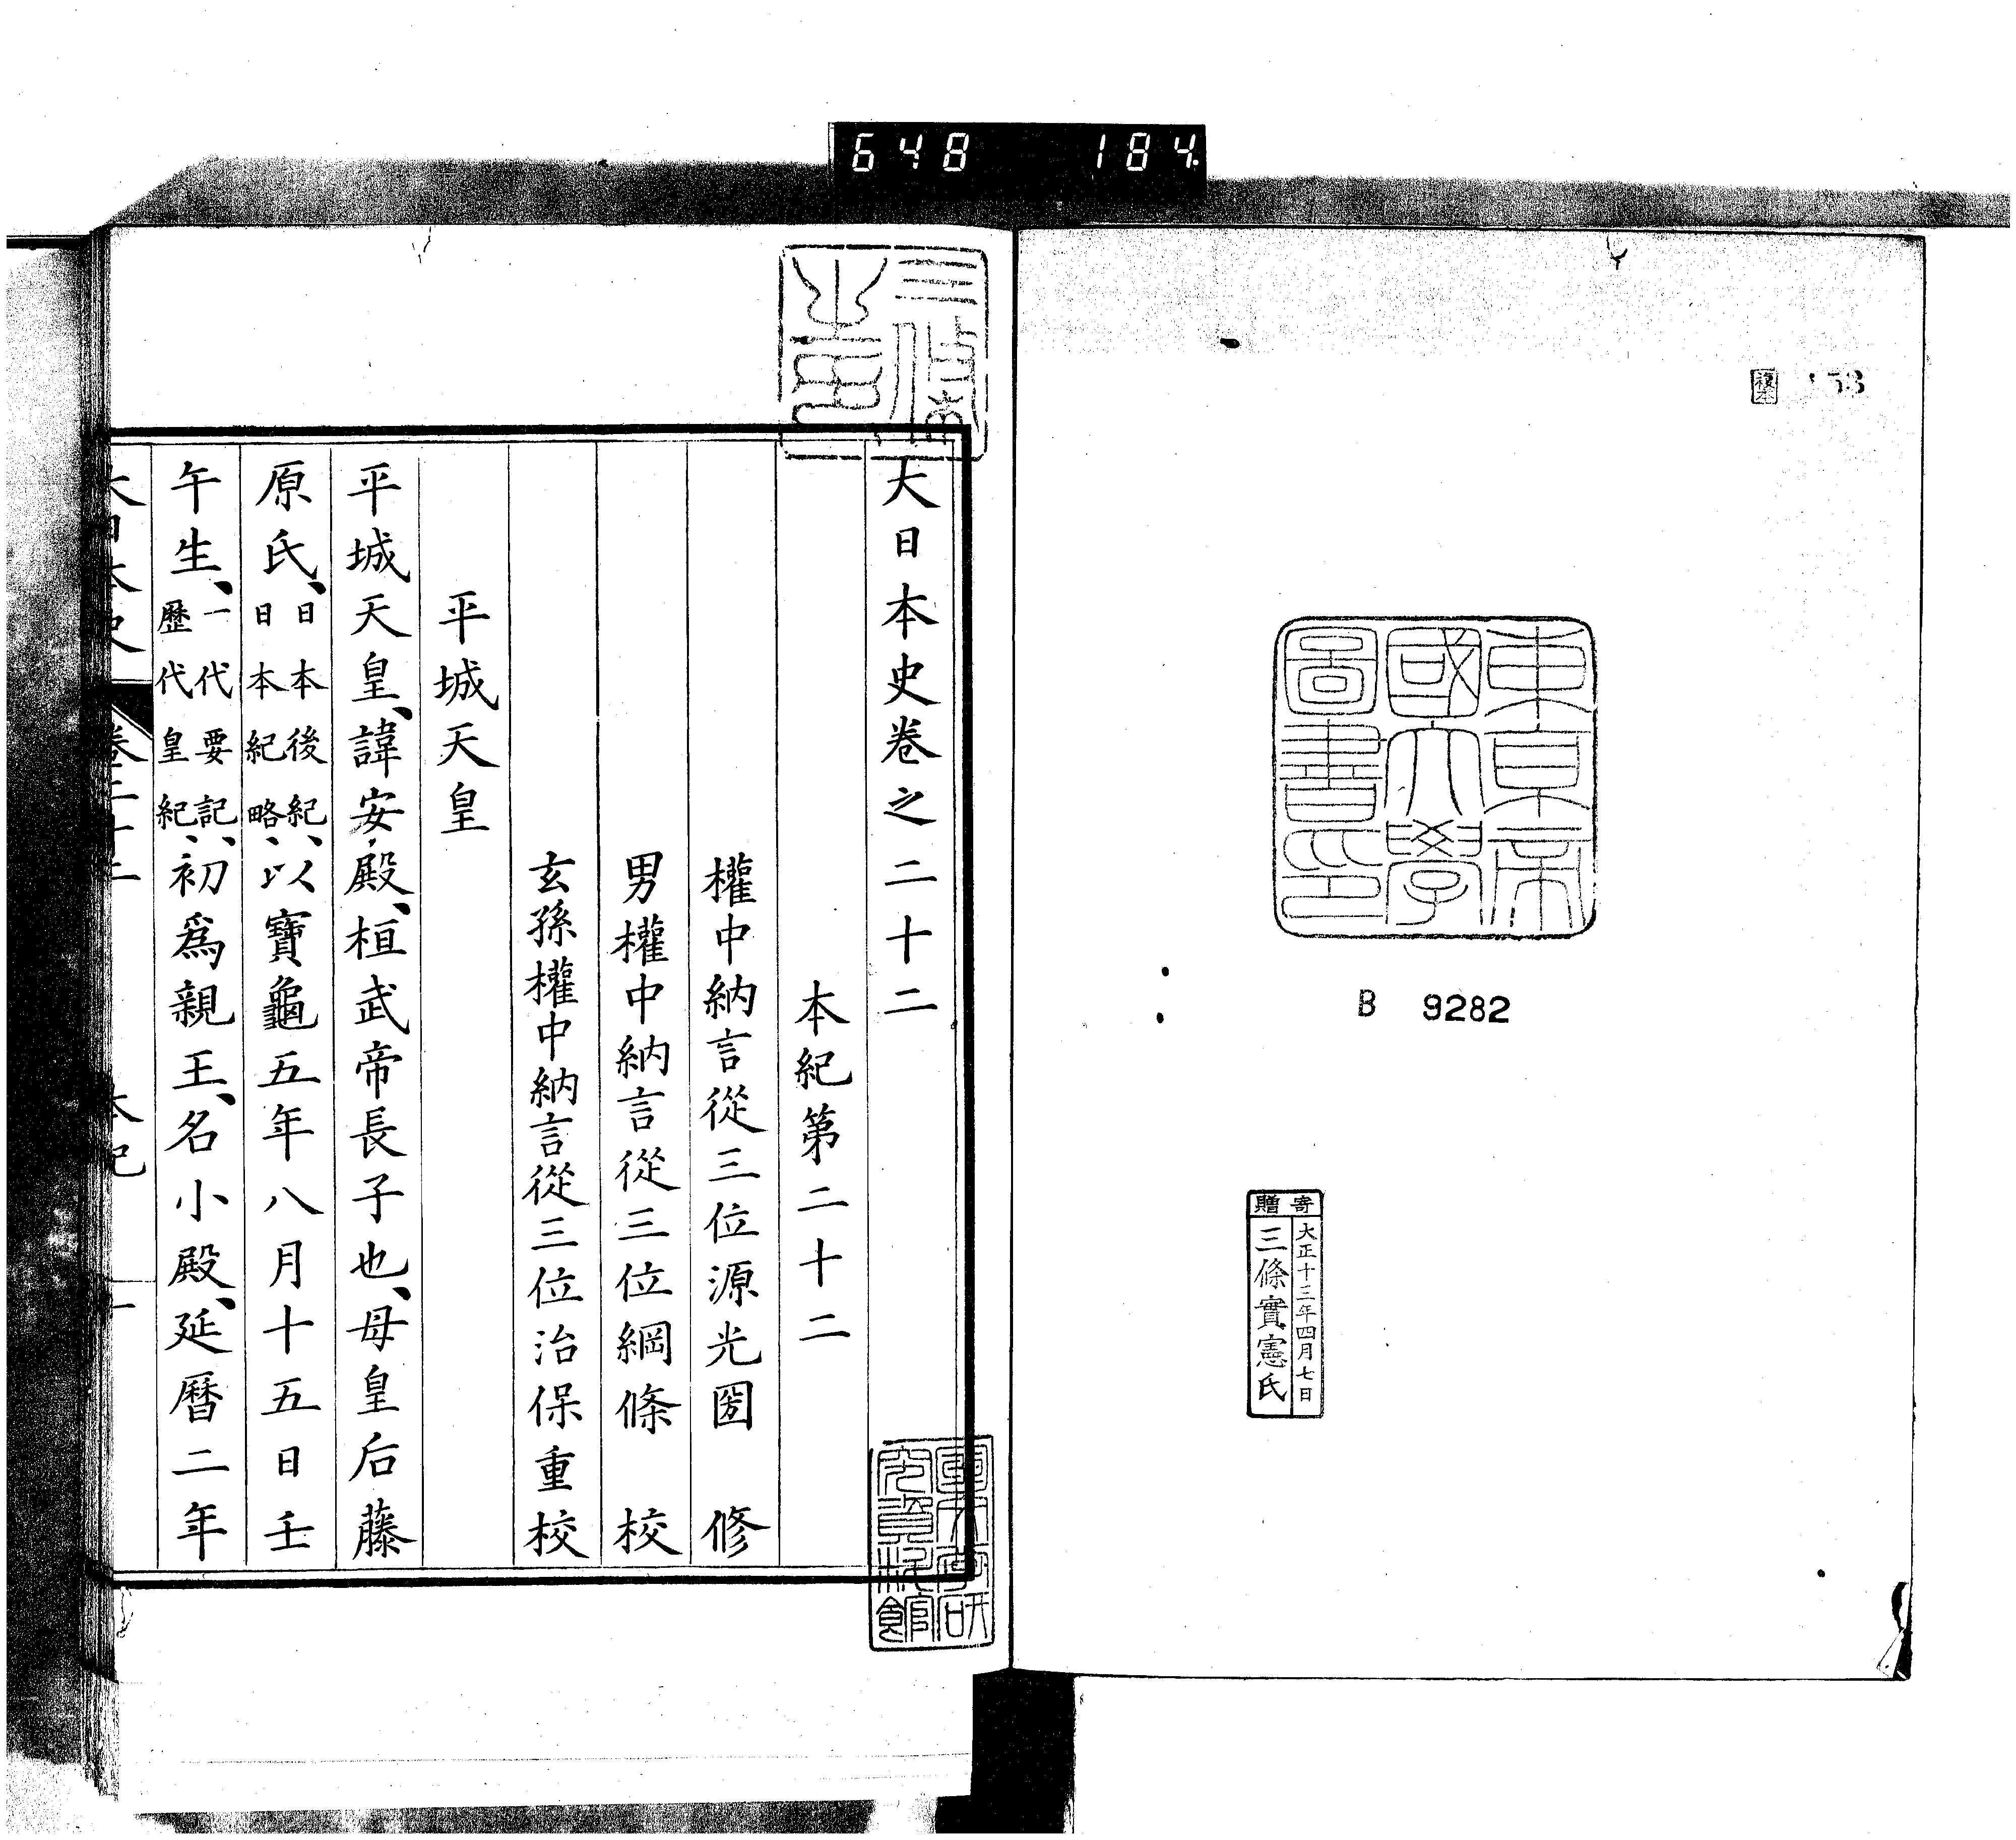 648 184
複本
53
東京帝
國大學
圖書印
B 9282
寄贈
大正十三年四月七日
三條實憲氏
大日本史卷之二十二
本紀第二十二
權中納言從三位源光圀 修
男權中納言從三位綱條 校
玄孫權中納言從三位治保重校
平城天皇
平城天皇、諱安殿、桓武帝長子也、母皇后藤
原氏、日本後紀、日本紀略、以寶龜五年八月十五日壬
午生、一代要記、歷代皇紀、初爲親王、名小殿、延曆二年
大日本史 卷二十二 本紀